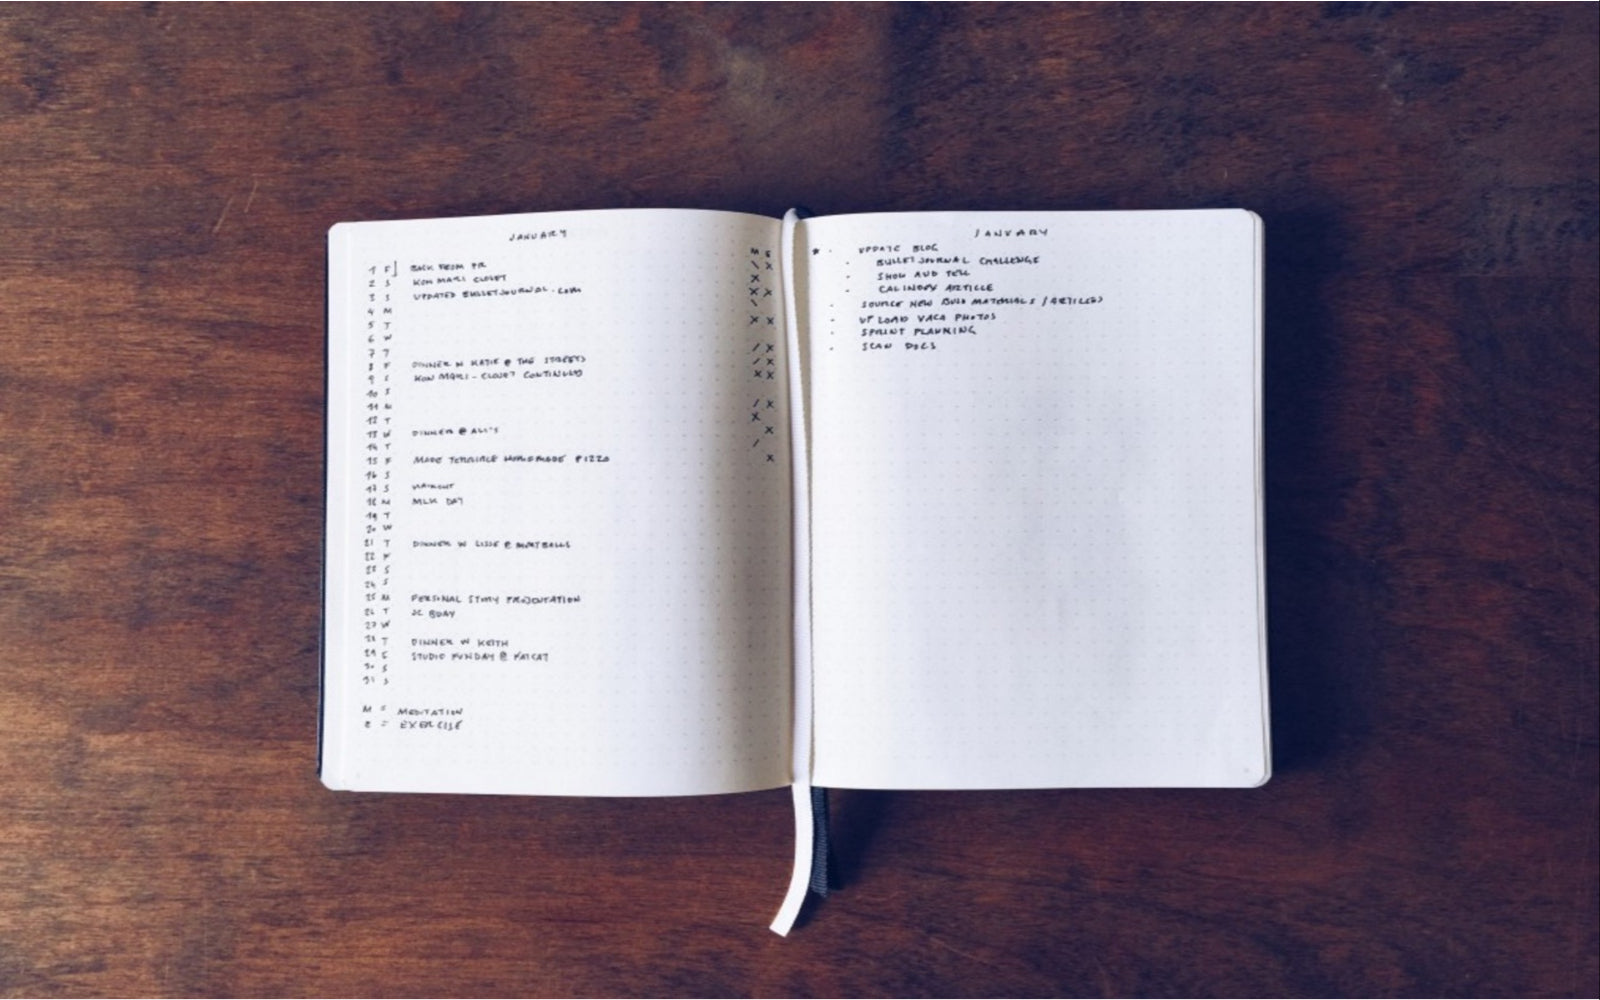 JANUARY
1 F] BACK FROM PR
2 S KON MARI CLOSET
3 S UPDATED BULLETJOURNAL.COM
4 M
5 T
6 W
7 T
8 F DINNER W KATIE @ THE STREETS
9 S KON MARI - CLOSET CONTINUED
10 S
11 M
12 T
13 W DINNER @ ALI'S
14 T
15 F MADE TERRIBLE HOMEMADE PIZZA
16 S
17 S
18 M MLK DAY
19 T
20 W
21 T DINNER W LISSE @ MEATBALLS
22 F
23 S
24 S
25 M PERSONAL STORY PRESENTATION
26 T JC BDAY
27 W
28 T DINNER W KEITH
29 F STUDIO FUNDAY @ FATCAT
30 S
31 S
M = MEDITATION
E = EXERCISE
M E
/ X
X
X X
\
X X
/ X
/ X
X X
/ X
X
X
/
X
JANUARY
* · UPDATE BLOG
· BULLET JOURNAL CHALLENGE
· SHOW AND TELL
· CALINDEX ARTICLE
· SOURCE NEW BUJO MATERIALS / ARTICLES
· UPLOAD VACA PHOTOS
· SPRINT PLANNING
· SCAN DOCS